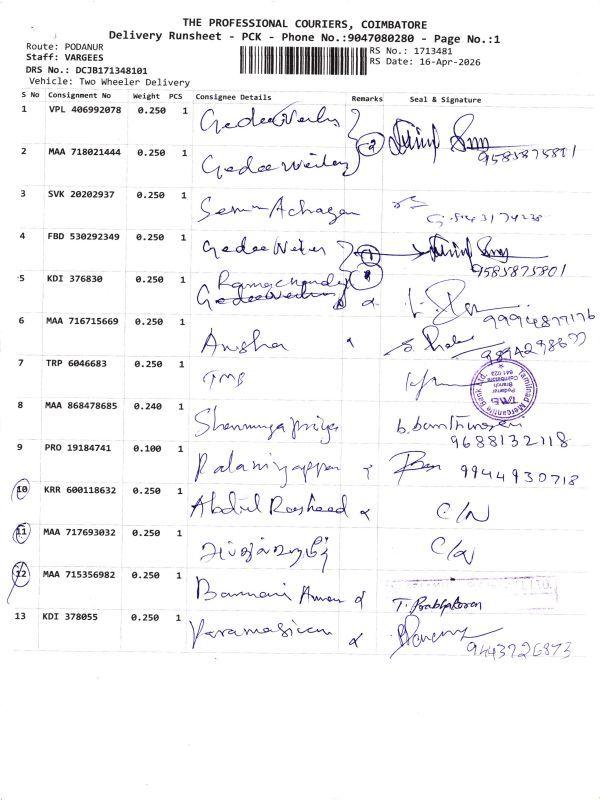 THE PROFESSIONAL COURIERS, COIMBATORE
Delivery Runsheet - PCK - Phone No.:9047080280 - Page No.:1
Route: PODANUR
Staff: VARGEES
DRS No.: DCJB171348101
Vehicle: Two Wheeler Delivery
RS No.: 1713481
RS Date: 16-Apr-2026
S No Consignment No Weight PCS Consignee Details Remarks Seal & Signature
1 VPL 406992078 0.250 1
2 MAA 718021444 0.250 1 2 9585875801
3 SVK 20202937 0.250 1
4 FBD 530292349 0.250 1 1 9585875801
5 KDI 376830 0.250 1 Ramachandr 9994877176
6 MAA 716715669 0.250 1 Anusha
7 TRP 6046683 0.250 1 TMB
Tamilnad Mercantile Bank Ltd.
TMB
Podanur
Branch
Coimbatore
641 023
8 MAA 868478685 0.240 1 Shanmuga priya 9688132118
9 PRO 19184741 0.100 1 Palaniyappan 9944930718
10 KRR 600118632 0.250 1 Abdul Rasheed C/N
11 MAA 717693032 0.250 1 C/N
12 MAA 715356982 0.250 1 Bannari Amman T. Prabhakaran
13 KDI 378055 0.250 1 Paramasivam 9443726873